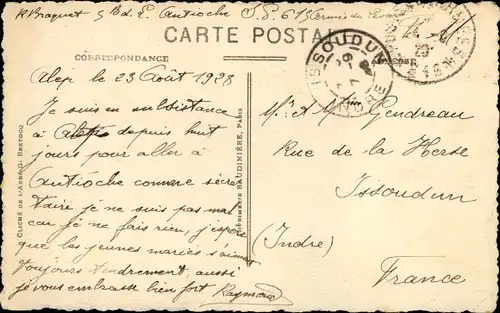 R Braquet 5 Bd d. E. Antioche S.P. 613 Armée du Levant
CARTE POSTALE
CORRESPONDANCE
Alep le 23 Août 1928
Je suis en subsistance
à Alep depuis huit
jours pour aller à
Antioche comme sécré
taire je ne suis pas mal
car je ne fais rien, j'espère
que les jeunes mariés s'aiment
toujours tendrement, aussi
je vous embrasse bien fort Raymond
CLICHÉ DE L'ABBÉ G. BERTOCQ
IMPRIMERIE BAUDINIÈRE, PARIS
ISSOUDUN
INDRE
Mr et Mme Gendreau
Rue de la Herse
Issoudun
(Indre)
France